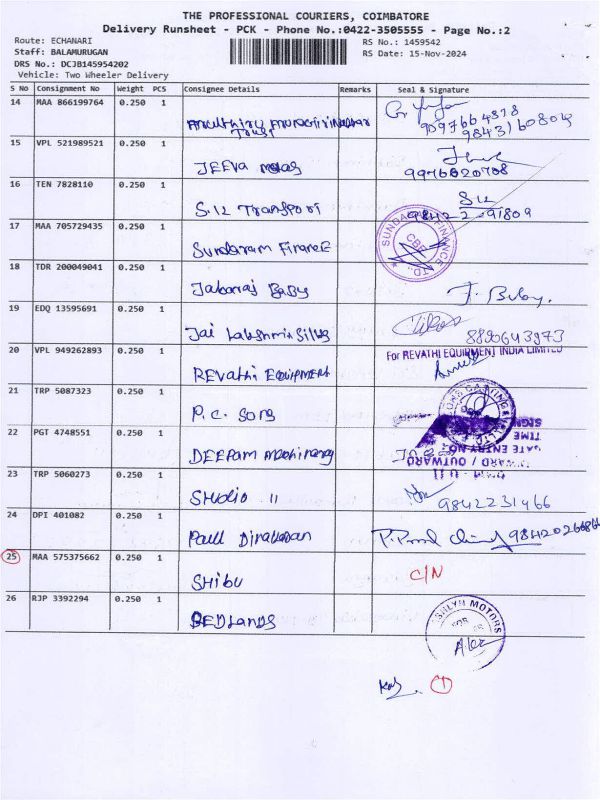 THE PROFESSIONAL COURIERS, COIMBATORE
Delivery Runsheet - PCK - Phone No.:0422-3505555 - Page No.:2
Route: ECHANARI
RS No.: 1459542
Staff: BALAMURUGAN
RS Date: 15-Nov-2024
DRS No.: DCJB145954202
Vehicle: Two Wheeler Delivery
S No Consignment No Weight PCS Consignee Details Remarks Seal & Signature
14 MAA 866199764 0.250 1
Trust
15 VPL 521989521 0.250 1
JEEVA
9976020708
16 TEN 7828110 0.250 1
Transport
98422-91809
17 MAA 705729435 0.250 1
Sundaram Finance
SUNDARAM FINANCE LTD.,
CBE
18 TDR 200049041 0.250 1
Jabaraj Baby
J. Baby.
19 EDQ 13595691 0.250 1
Jai Lakshmi Silks
8890643973
20 VPL 949262893 0.250 1
REvathi EQUIPMENT
For REVATHI EQUIPMENT INDIA LIMITED
21 TRP 5087323 0.250 1
P.C. Sons
22 PGT 4748551 0.250 1
DEEPam machinary
SIGN
TIME
GATE ENTRY NO.
INWARD / OUTWARD
23 TRP 5060273 0.250 1
Studio 11
9842231466
24 DPI 401082 0.250 1
Paul
25 MAA 575375662 0.250 1
SHibu
C/N
26 RJP 3392294 0.250 1
BEDLANDS
MOTORS
FOR
1